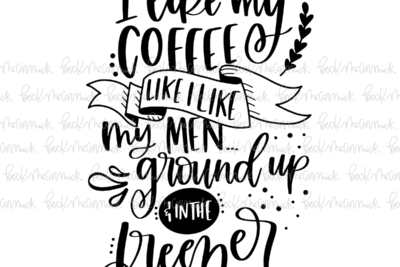 I like my
COFFEE
LIKE I LIKE
my MEN...
ground up
& IN THE
freezer